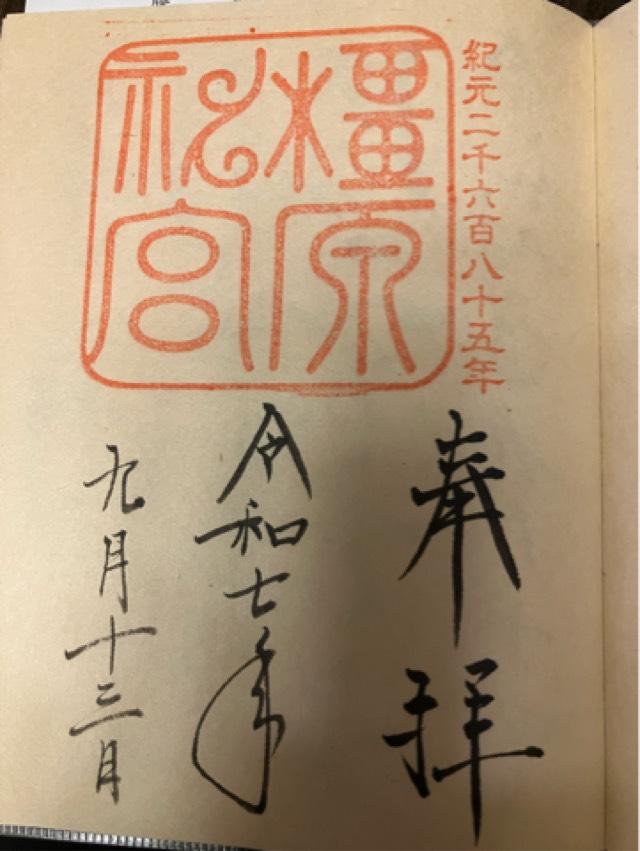 紀元二千六百八十五年
橿原
神宮
奉拝
令和七年
九月十三日